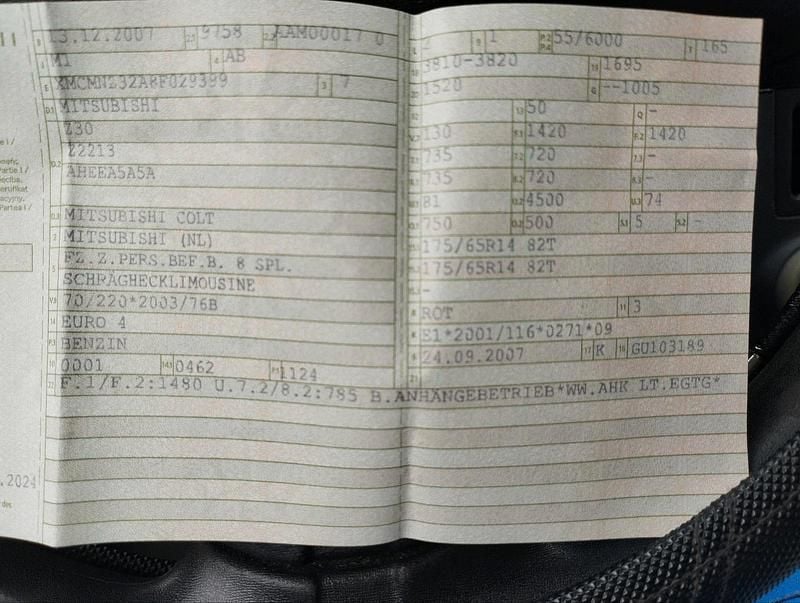 13.12.2007 9758 AAM00017 0
M1 AB
7
MITSUBISHI
Z30
Z2213
AHEEA5A5A
MITSUBISHI COLT
MITSUBISHI (NL)
FZ.Z.PERS.BEF.B. 8 SPL.
SCHRÄGHECKLIMOUSINE
70/220*2003/76B
EURO 4
BENZIN
0001 0462 1124
2 1 55/6000 165
3810-3820 1695
1520 --1005
50 -
130 1420 1420
735 720 -
735 720 -
81 4500 74
750 500 5 -
175/65R14 82T
175/65R14 82T
-
ROT 3
E1*2001/116*0271*09
24.09.2007 K GU103189
F.1/F.2:1480 U.7.2/8.2:785 B.ANHÄNGEBETRIEB*WW.AHK LT.EGTG*
.2024